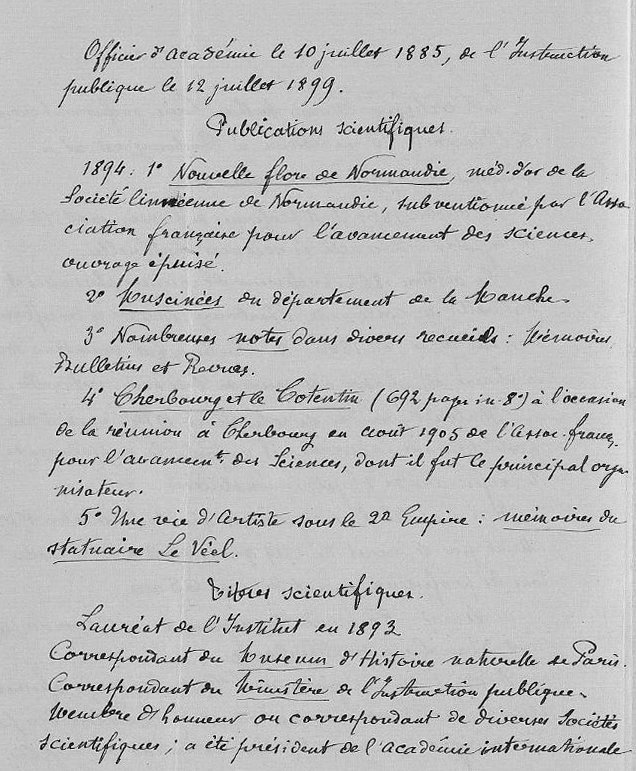 Officier d'Académie le 10 juillet 1885, de l'Instruction
publique le 12 juillet 1899.
Publications scientifiques.
1894: 1° Nouvelle flore de Normandie, méd. d'or de la
Société linnéenne de Normandie, subventionné par l'Asso
ciation française pour l'avancement des sciences,
ouvrage épuisé.
2° Muscinées du département de la Manche.
3° Nombreuses notes dans divers recueils : Mémoires
Bulletins et Revues.
4° Cherbourg et le Cotentin (692 pages in-8°) à l'occasion
de la réunion à Cherbourg en août 1905 de l'Assoc. franç.
pour l'avancemt des Sciences, dont il fut le principal orga
nisateur.
5° Une vie d'Artiste sous le 2d Empire : mémoires du
statuaire Le Véel.
Titres scientifiques.
Lauréat de l'Institut en 1893
Correspondant du Museum d'Histoire naturelle de Paris.
Correspondant du Ministère de l'Instruction publique.
Membre d'honneur ou correspondant de diverses Sociétés
scientifiques ; a été président de l'Académie internationale